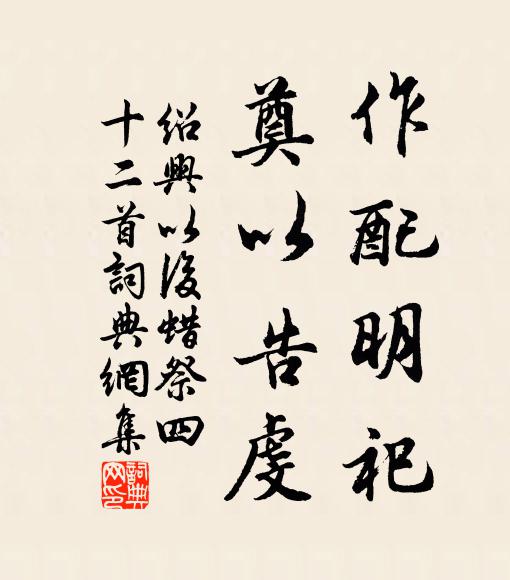 作配明祀
奠以告虔
紹興以後蜡祭四
十二首詞典網集
詞典
网印